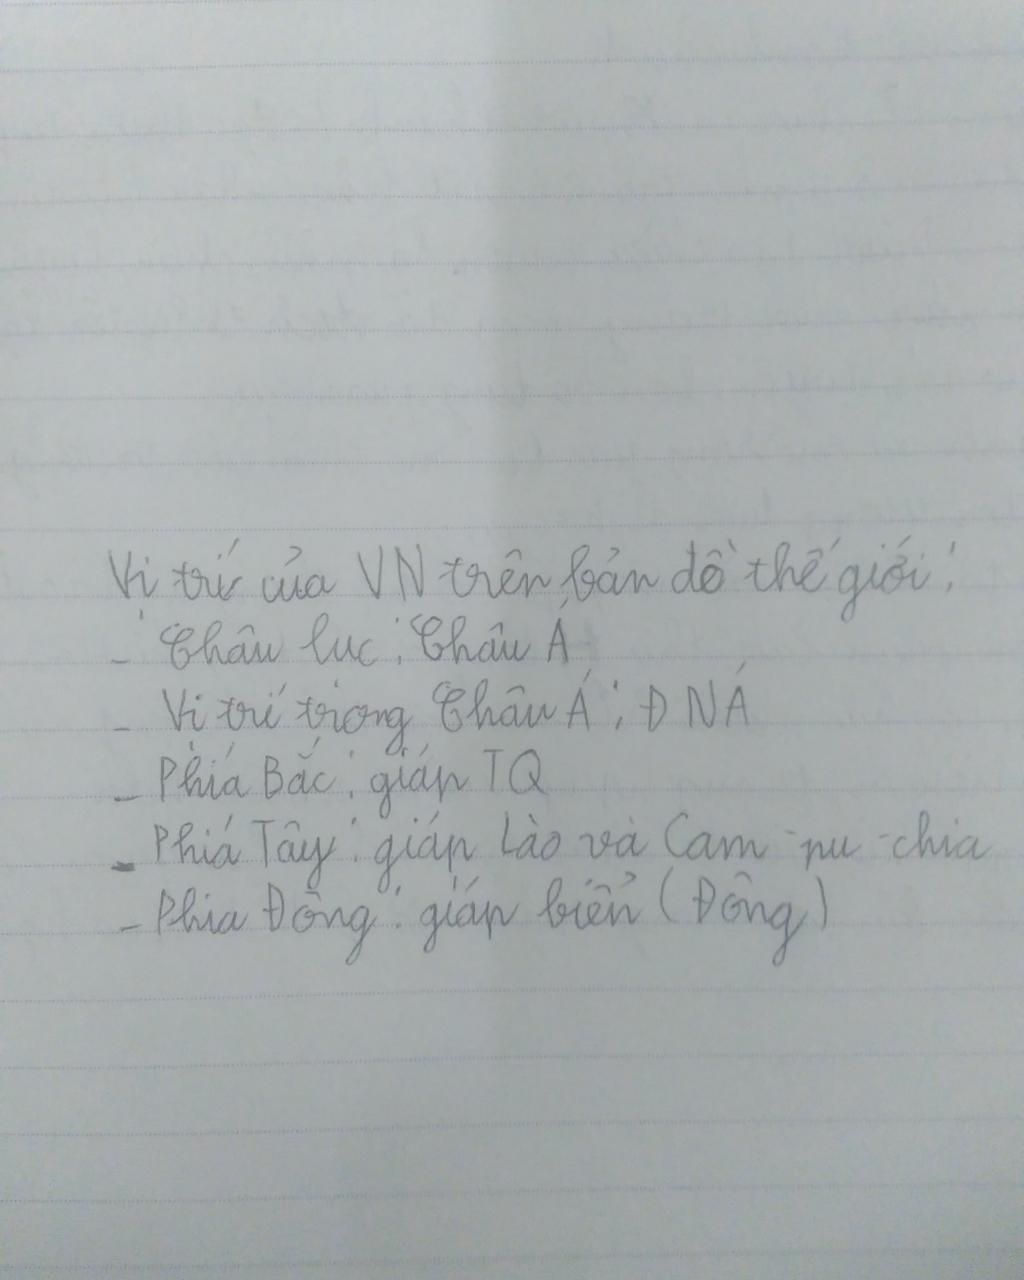 Vị trí của VN trên bản đồ thế giới:
- Châu lục: Châu Á
- Vị trí trong Châu Á: ĐNÁ
- Phía Bắc: giáp TQ
- Phía Tây: giáp Lào và Cam-pu-chia
- Phía Đông: giáp biển (Đông)